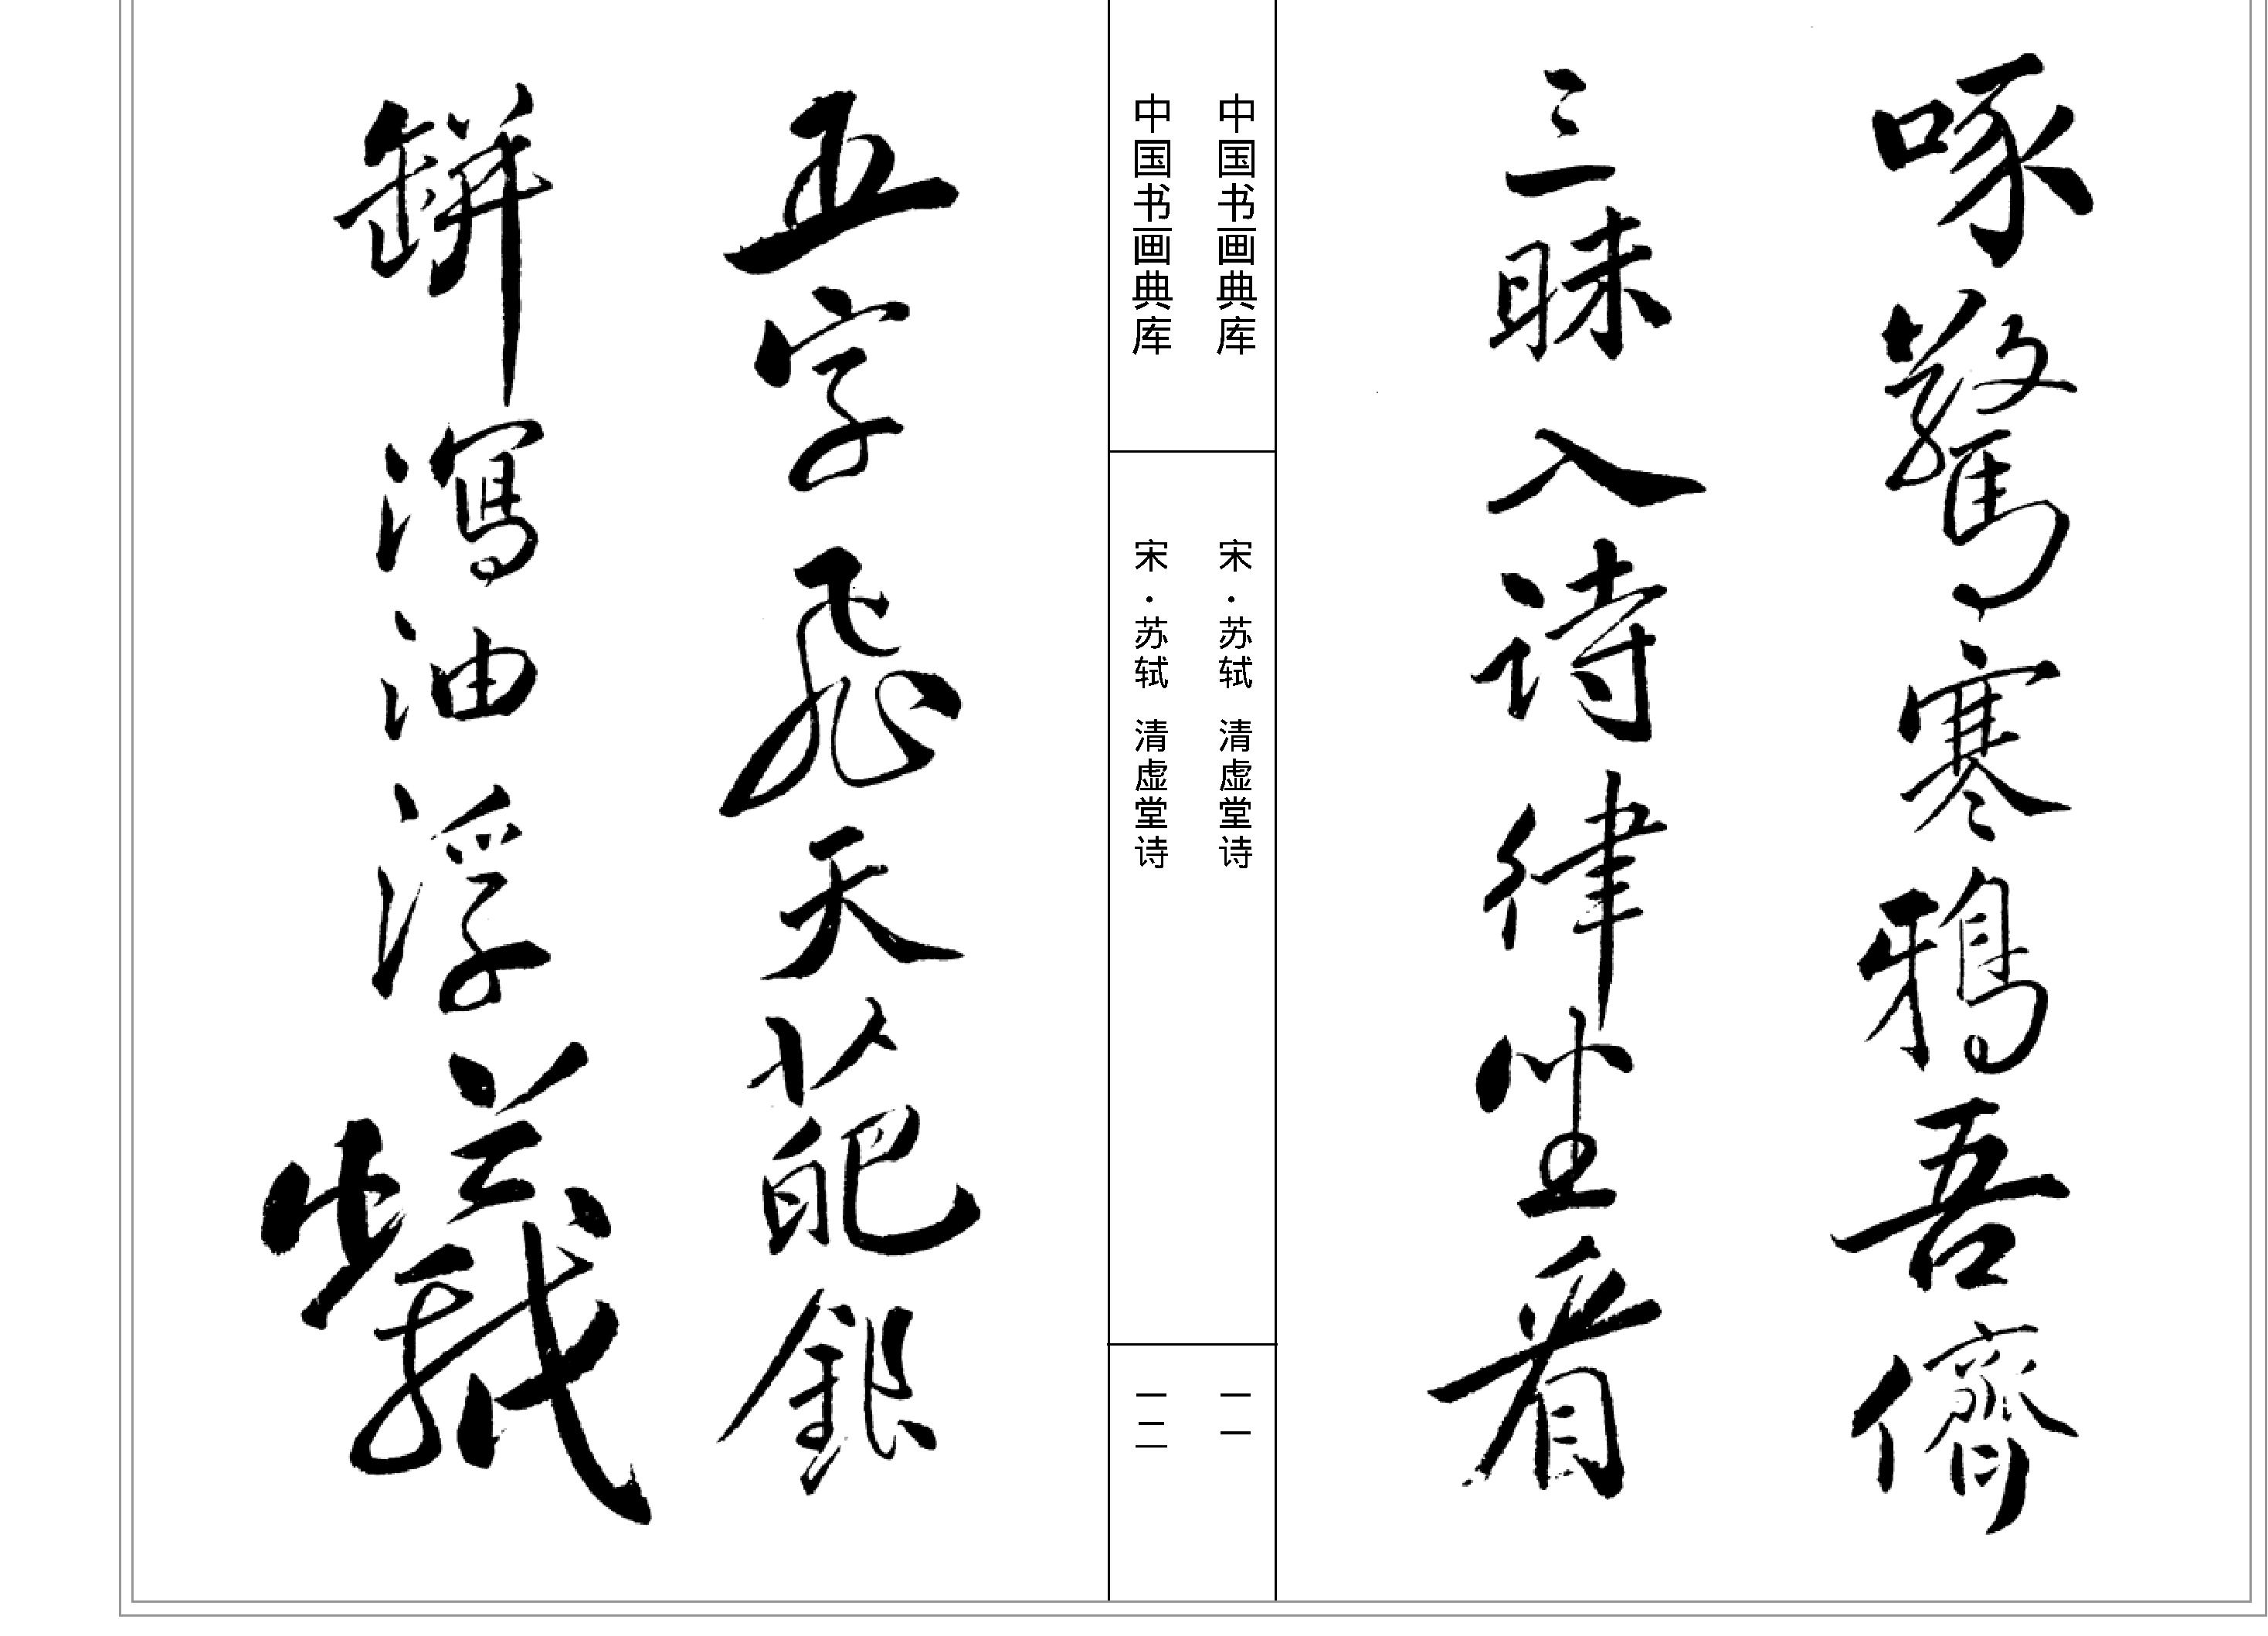 啄驚寒鴉吾儕
三昧入詩律坐看
中国书画典库
宋·苏轼 清虚堂诗
一一
中国书画典库
宋·苏轼 清虚堂诗
一二
五字飛天葩銀
缾瀉油浮蟻